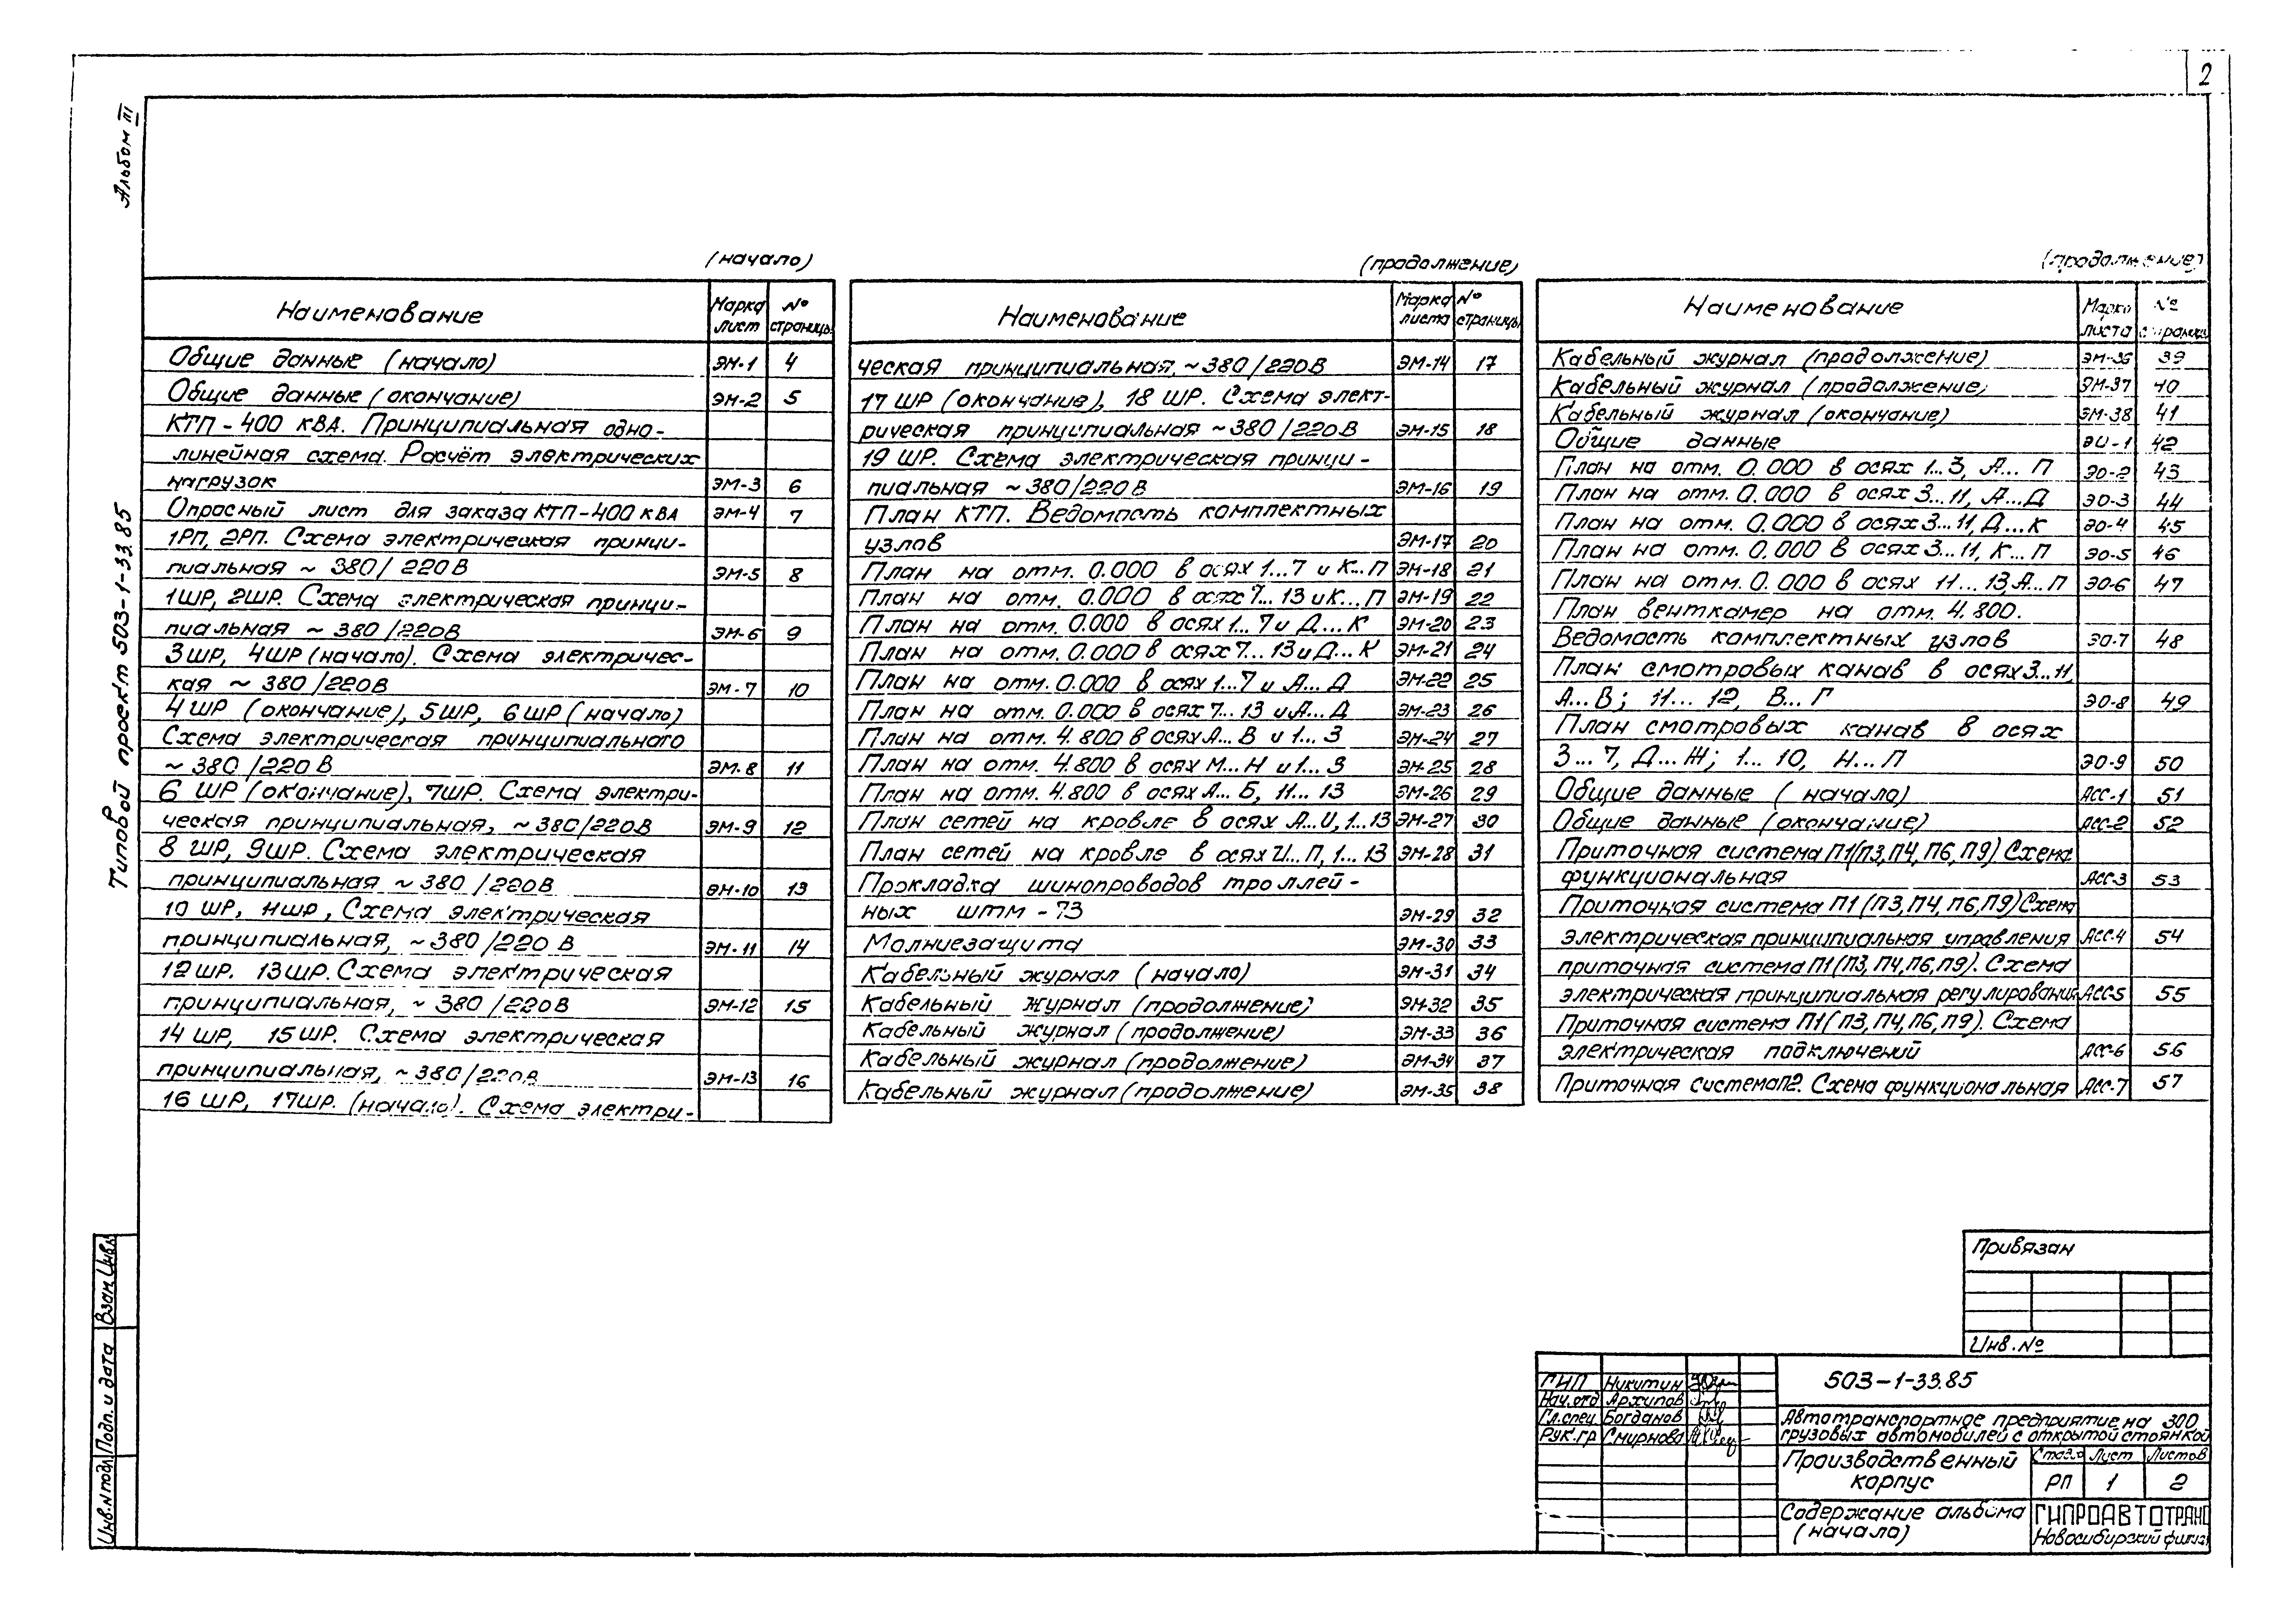 2
Альбом III
Типовой проект 503-1-33.85
(начало)
Наименование Марка лист № страницы
Общие данные (начало) ЭМ-1 4
Общие данные (окончание) ЭМ-2 5
КТП-400 кВА. Принципиальная одно-
линейная схема. Расчёт электрических
нагрузок ЭМ-3 6
Опросный лист для заказа КТП-400 кВА ЭМ-4 7
1РП, 2РП. Схема электрическая принци-
пиальная ~ 380/220В ЭМ-5 8
1ШР, 2ШР. Схема электрическая принци-
пиальная ~ 380/220В ЭМ-6 9
3ШР, 4ШР (начало). Схема электричес-
кая ~ 380/220В ЭМ-7 10
4ШР (окончание), 5ШР, 6ШР (начало)
Схема электрическая принципиального
~ 380/220В ЭМ-8 11
6 ШР (окончание), 7ШР. Схема электри-
ческая принципиальная, ~380/220В ЭМ-9 12
8 ШР, 9ШР. Схема электрическая
принципиальная ~ 380/220В ЭМ-10 13
10 ШР, 11ШР, Схема электрическая
принципиальная, ~380/220 В ЭМ-11 14
12ШР. 13ШР. Схема электрическая
принципиальная, ~ 380/220В ЭМ-12 15
14 ШР, 15ШР. Схема электрическая
принципиальная, ~380/220В ЭМ-13 16
16 ШР, 17ШР. (начало). Схема электри-
(продолжение)
Наименование Марка листа № страницы
ческая принципиальная, ~380/220В ЭМ-14 17
17 ШР (окончание), 18 ШР. Схема элект-
рическая принципиальная ~380/220В ЭМ-15 18
19 ШР. Схема электрическая принци-
пиальная ~380/220В ЭМ-16 19
План КТП. Ведомость комплектных
узлов ЭМ-17 20
План на отм. 0.000 в осях 1...7 и К...П ЭМ-18 21
План на отм. 0.000 в осях 7...13 и К...П ЭМ-19 22
План на отм. 0.000 в осях 1...7 и Д...К ЭМ-20 23
План на отм. 0.000 в осях 7...13 и Д...К ЭМ-21 24
План на отм. 0.000 в осях 1...7 и А...Д ЭМ-22 25
План на отм. 0.000 в осях 7...13 и А...Д ЭМ-23 26
План на отм. 4.800 в осях А...В и 1...3 ЭМ-24 27
План на отм. 4.800 в осях М...Н и 1...3 ЭМ-25 28
План на отм. 4.800 в осях А...Б, 11...13 ЭМ-26 29
План сетей на кровле в осях А...И, 1...13 ЭМ-27 30
План сетей на кровле в осях И...П, 1...13 ЭМ-28 31
Прокладка шинопроводов троллей-
ных штм-73 ЭМ-29 32
Молниезащита ЭМ-30 33
Кабельный журнал (начало) ЭМ-31 34
Кабельный журнал (продолжение) ЭМ-32 35
Кабельный журнал (продолжение) ЭМ-33 36
Кабельный журнал (продолжение) ЭМ-34 37
Кабельный журнал (продолжение) ЭМ-35 38
(продолжение)
Наименование Марка листа № страницы
Кабельный журнал (продолжение) ЭМ-36 39
Кабельный журнал (продолжение) ЭМ-37 40
Кабельный журнал (окончание) ЭМ-38 41
Общие данные ЭО-1 42
План на отм. 0.000 в осях 1...3, А...П ЭО-2 43
План на отм. 0.000 в осях 3...11, А...Д ЭО-3 44
План на отм. 0.000 в осях 3...11, Д...К ЭО-4 45
План на отм. 0.000 в осях 3...11, К...П ЭО-5 46
План на отм. 0.000 в осях 11...13, А...П ЭО-6 47
План венткамер на отм. 4.800.
Ведомость комплектных узлов ЭО-7 48
План смотровых канав в осях 3...11,
А...В; 11...12, В...Г ЭО-8 49
План смотровых канав в осях
3...7, Д...Ж; 1...10, Н...П ЭО-9 50
Общие данные (начало) АСС-1 51
Общие данные (окончание) АСС-2 52
Приточная система П1 (П3, П4, П6, П9) Схема
функциональная АСС-3 53
Приточная система П1 (П3, П4, П6, П9) Схема
электрическая принципиальная управления АСС-4 54
приточная система П1 (П3, П4, П6, П9). Схема
электрическая принципиальная регулирования АСС-5 55
Приточная система П1 (П3, П4, П6, П9). Схема
электрическая подключений АСС-6 56
Приточная система П2. Схема функциональная АСС-7 57
Привязан
Инв. №
ГИП Никитин
Нач.отд Архипов
Гл.спец. Богданов
Рук.гр Смирнова
503-1-33.85
Автотранспортное предприятие на 300
грузовых автомобилей с открытой стоянкой
Производственный корпус
Лист Листов
РП 1 2
Содержание альбома
(начало)
ГИПРОАВТОТРАНС
Новосибирский филиал
Инв.№подл. Подп. и дата Взам.Инв.